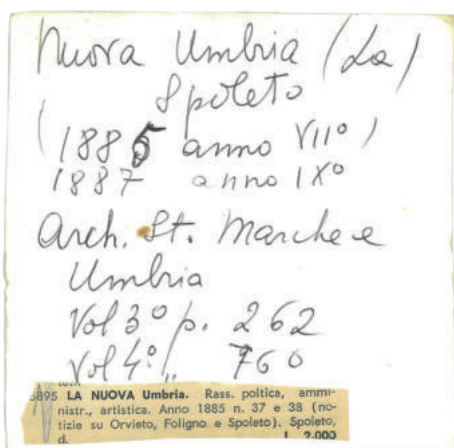 Nuova Umbria (La)
Spoleto
(1885 anno VII°)
1887 anno IX°
Arch. St. Marche e
Umbria
Vol 3° p. 262
Vol 4° „ 760
5895 LA NUOVA Umbria. Rass. poltica, ammi-
nistr., artistica. Anno 1885 n. 37 e 38 (no-
tizie su Orvieto, Foligno e Spoleto). Spoleto,
d. L. 2.000